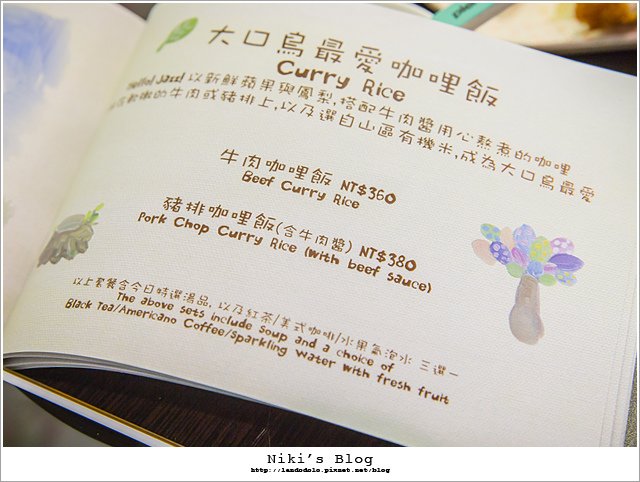 大口鳥最愛咖哩飯
Curry Rice
Hello! Jazz! 以新鮮蘋果與鳳梨,搭配牛肉醬用心熬煮的咖哩
軟嫩的牛肉或豬排上,以及選自山區有機米,成為大口鳥最愛
牛肉咖哩飯 NT$360
Beef Curry Rice
豬排咖哩飯(含牛肉醬) NT$380
Pork Chop Curry Rice (with beef sauce)
以上套餐含今日特選湯品, 以及紅茶/美式咖啡/水果氣泡水 三選一
The above sets include soup and a choice of
Black Tea/Americano Coffee/Sparkling Water with fresh fruit
Niki's Blog
http://landodolo.pixnet.net/blog